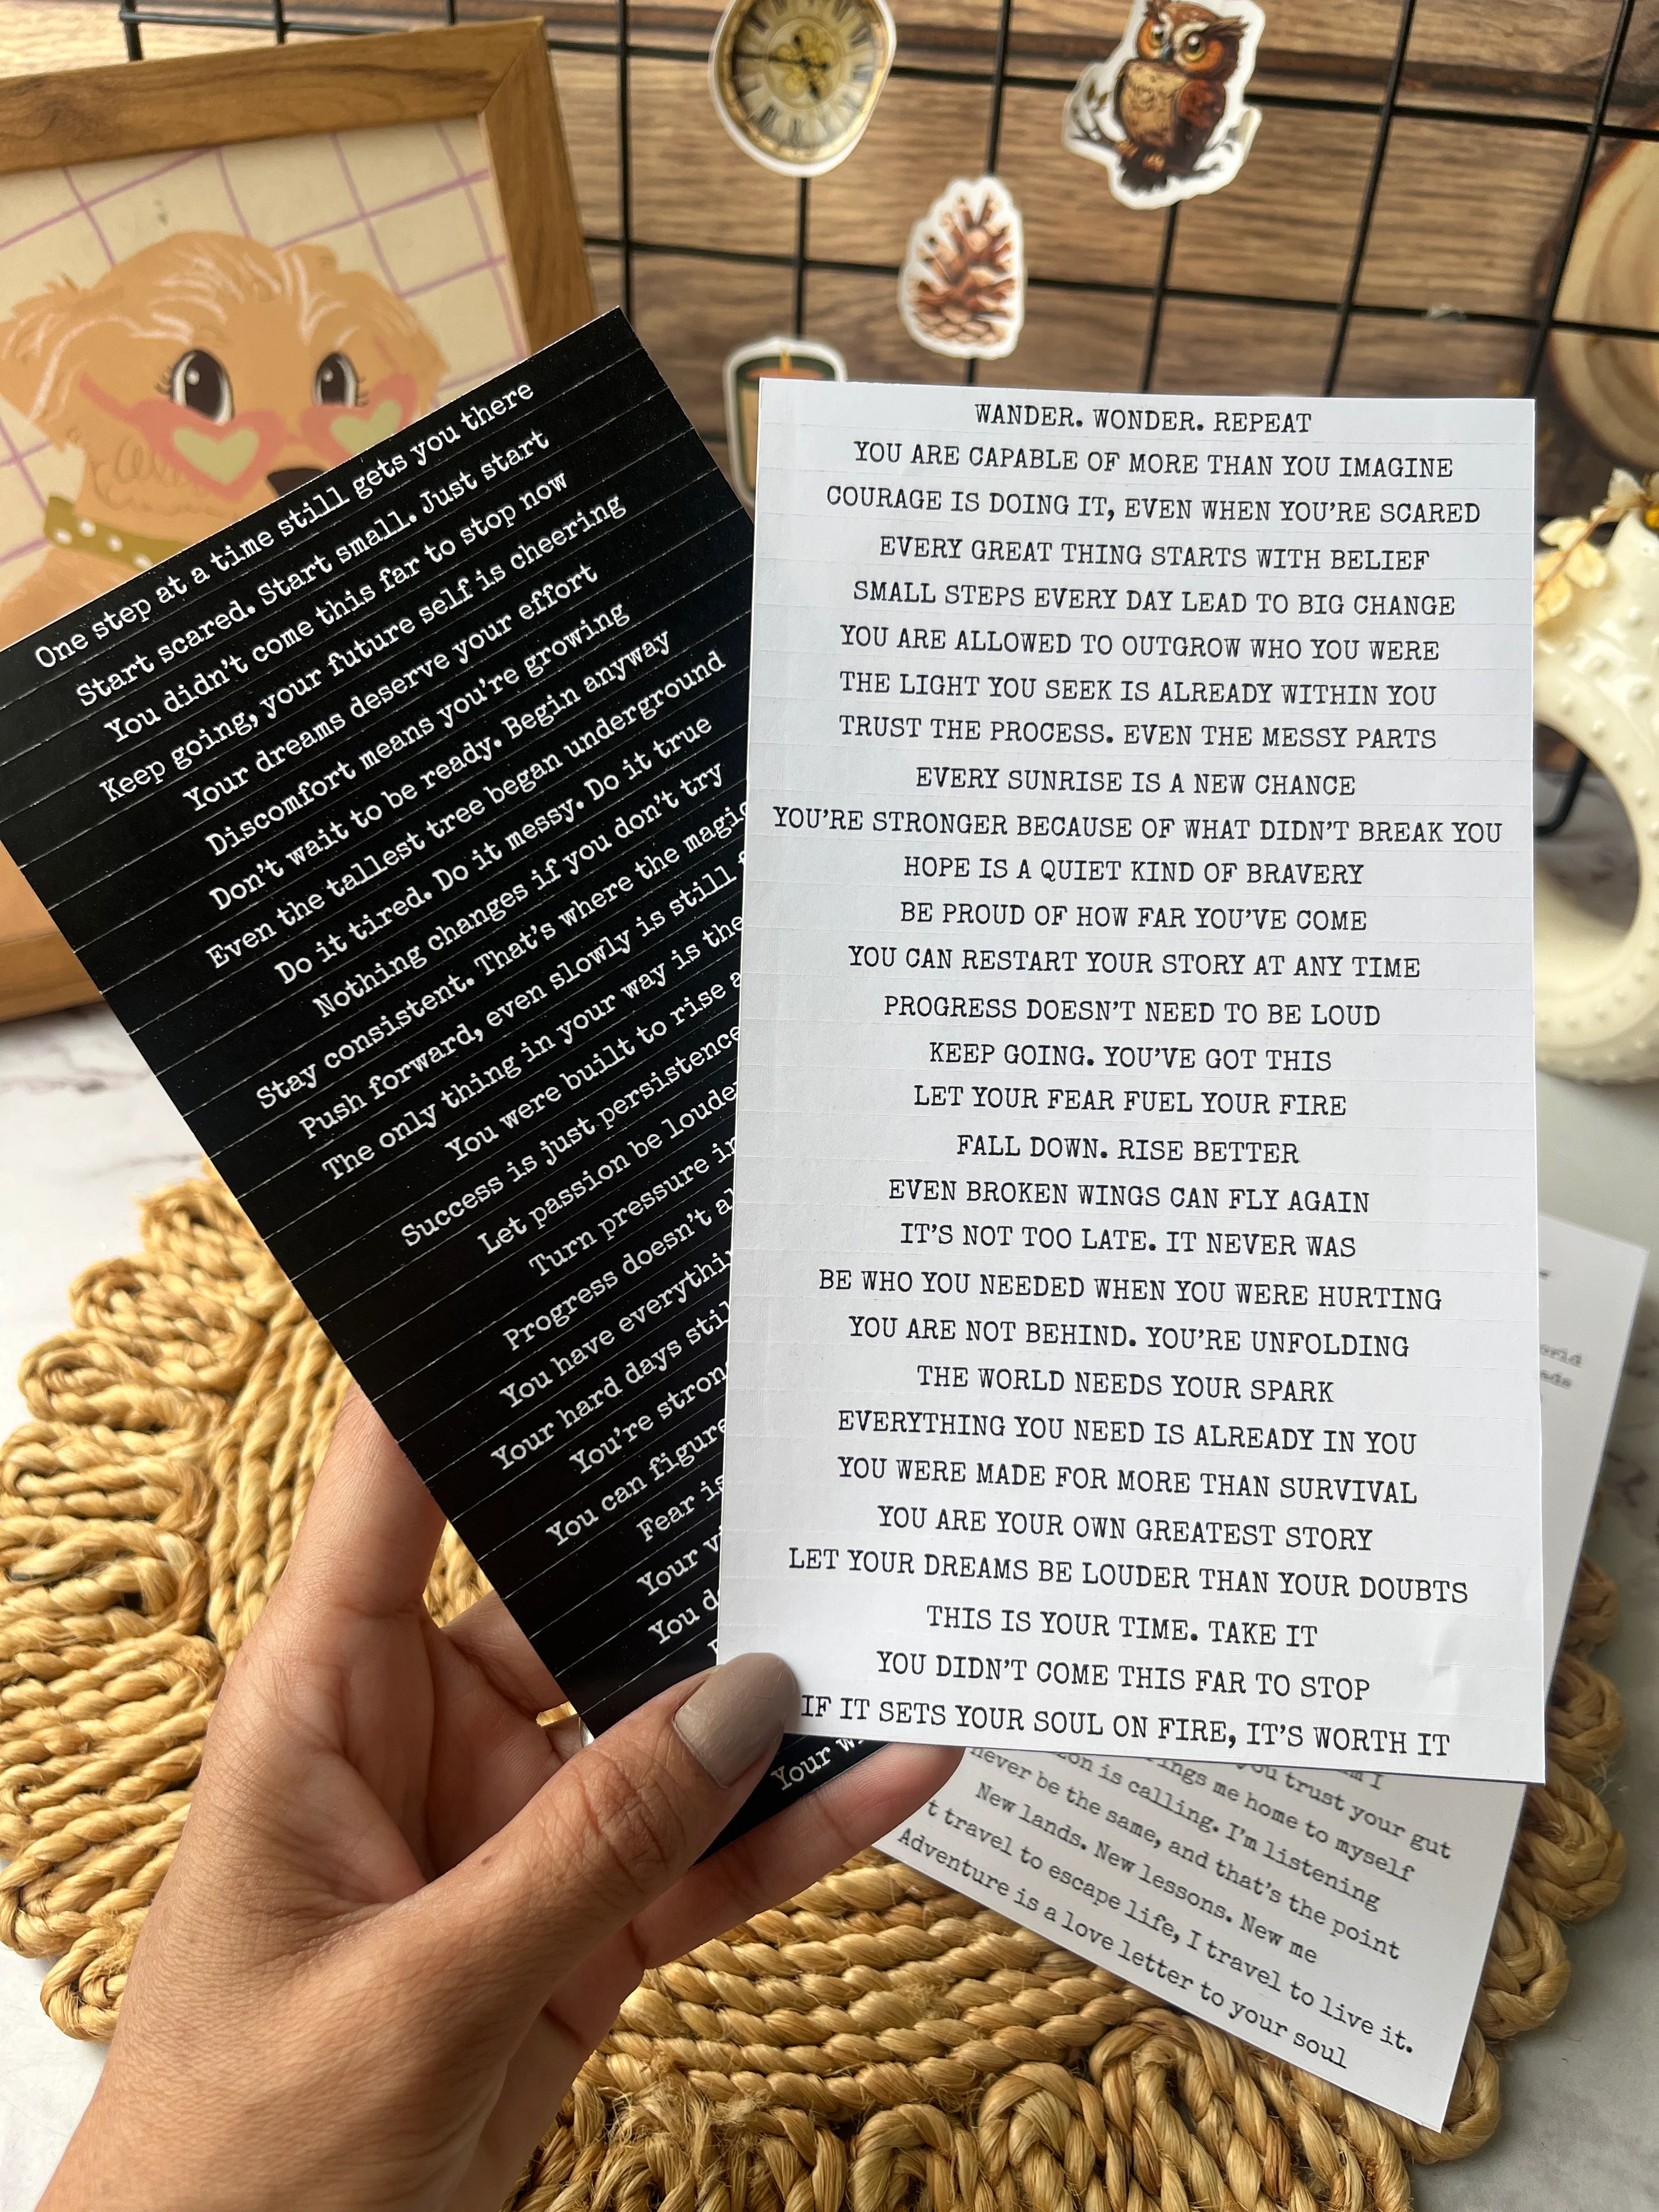 One step at a time still gets you there
Start scared. Start small. Just start
You didn't come this far to stop now
Keep going, your future self is cheering
Your dreams deserve your effort
Discomfort means you're growing
Don't wait to be ready. Begin anyway
Even the tallest tree began underground
Do it tired. Do it messy. Do it true
Nothing changes if you don't try
Stay consistent. That's where the magic
Push forward, even slowly is still
The only thing in your way is the
You were built to rise
Success is just persistence
Let passion be louder
Turn pressure
Progress doesn't
You have
Your hard days
You're
You can figure
Fear is
Your
You
Your
WANDER. WONDER. REPEAT
YOU ARE CAPABLE OF MORE THAN YOU IMAGINE
COURAGE IS DOING IT, EVEN WHEN YOU'RE SCARED
EVERY GREAT THING STARTS WITH BELIEF
SMALL STEPS EVERY DAY LEAD TO BIG CHANGE
YOU ARE ALLOWED TO OUTGROW WHO YOU WERE
THE LIGHT YOU SEEK IS ALREADY WITHIN YOU
TRUST THE PROCESS. EVEN THE MESSY PARTS
EVERY SUNRISE IS A NEW CHANCE
YOU'RE STRONGER BECAUSE OF WHAT DIDN'T BREAK YOU
HOPE IS A QUIET KIND OF BRAVERY
BE PROUD OF HOW FAR YOU'VE COME
YOU CAN RESTART YOUR STORY AT ANY TIME
PROGRESS DOESN'T NEED TO BE LOUD
KEEP GOING. YOU'VE GOT THIS
LET YOUR FEAR FUEL YOUR FIRE
FALL DOWN. RISE BETTER
EVEN BROKEN WINGS CAN FLY AGAIN
IT'S NOT TOO LATE. IT NEVER WAS
BE WHO YOU NEEDED WHEN YOU WERE HURTING
YOU ARE NOT BEHIND. YOU'RE UNFOLDING
THE WORLD NEEDS YOUR SPARK
EVERYTHING YOU NEED IS ALREADY IN YOU
YOU WERE MADE FOR MORE THAN SURVIVAL
YOU ARE YOUR OWN GREATEST STORY
LET YOUR DREAMS BE LOUDER THAN YOUR DOUBTS
THIS IS YOUR TIME. TAKE IT
YOU DIDN'T COME THIS FAR TO STOP
IF IT SETS YOUR SOUL ON FIRE, IT'S WORTH IT
I
you trust your gut
me home to myself
is calling. I'm listening
never be the same, and that's the point
New lands. New lessons. New me
travel to escape life, I travel to live it.
Adventure is a love letter to your soul